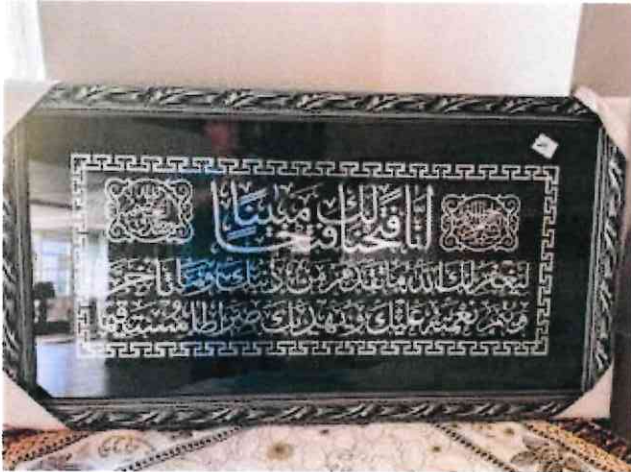 إنا فتحنا لك فتحا مبينا
ليغفر لك الله ما تقدم من ذنبك وما تأخر
ويتم نعمته عليك ويهديك صراطا مستقيما